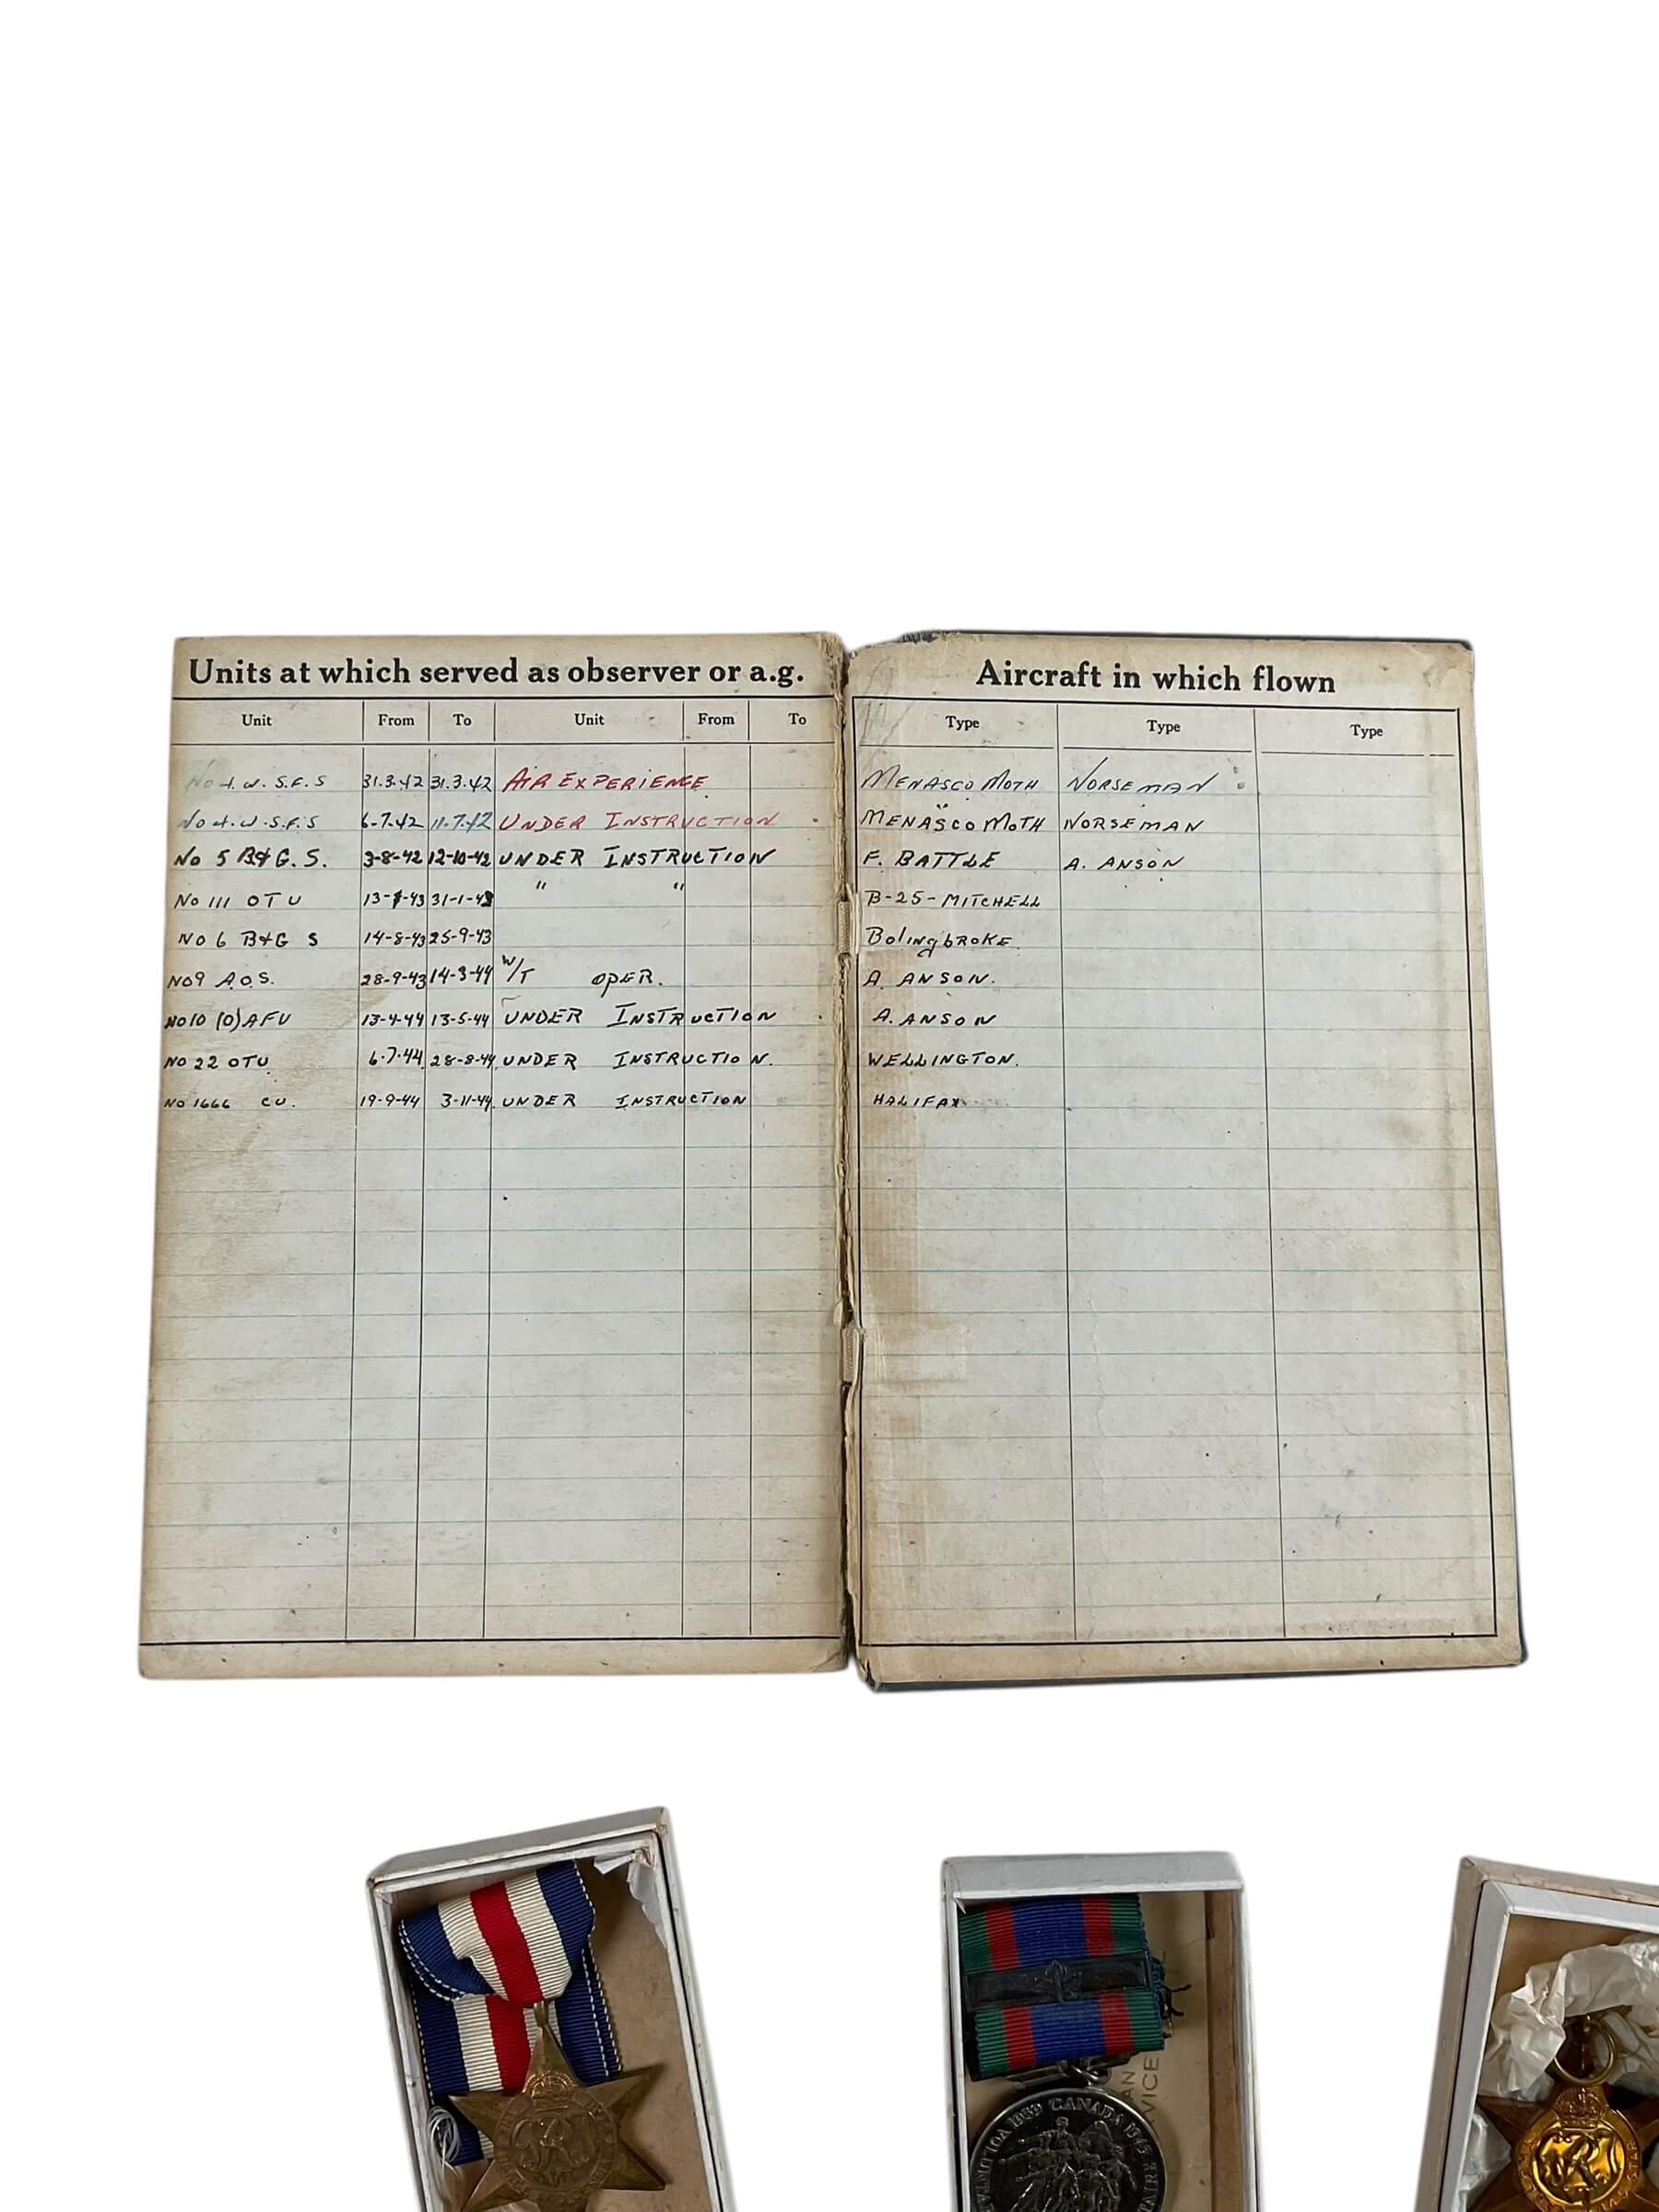 Units at which served as observer or a.g.
Unit From To Unit From To
No 4. W. S.F.S 31.3.42 31.3.42 AIR EXPERIENCE
No 4. W. S.F.S 6-7.42 11.7.42 UNDER INSTRUCTION
No 5 B&G. S. 3-8-42 12-10-42 UNDER INSTRUCTION
No 111 OTU 13-1-43 31-1-43 " "
No 6 B&G S 14-8-43 25-9-43
No 9 A.O.S. 28-9-43 14-3-44 W/T OPER.
No 10 (O) AFU 13-4-44 13-5-44 UNDER INSTRUCTION
No 22 OTU 6-7-44 28-8-44 UNDER INSTRUCTION.
No 1666 CU. 19-9-44 3-11-44 UNDER INSTRUCTION
Aircraft in which flown
Type Type Type
MENASCO MOTH NORSEMAN
MENASCO MOTH NORSEMAN
F. BATTLE A. ANSON
B-25-MITCHELL
BolingbROKE
A. ANSON.
A. ANSON
WELLINGTON.
HALIFAX
1939 CANADA 1945